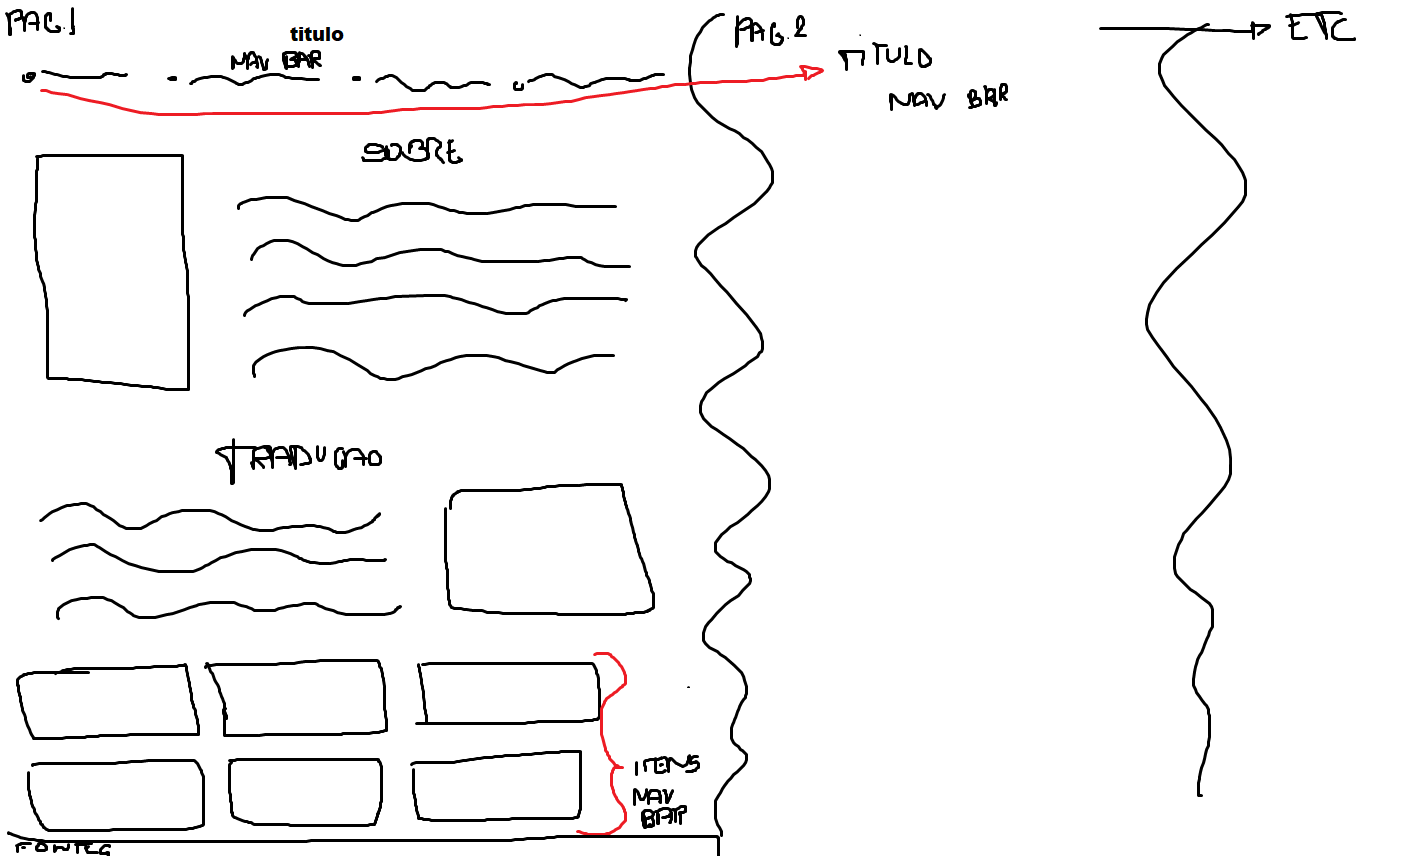 PAG.1
titulo
NAV BAR
SOBRE
TRADUCAO
ITENS
NAV
BAR
FONTES
PAG.2
TITULO
NAV BAR
ETC